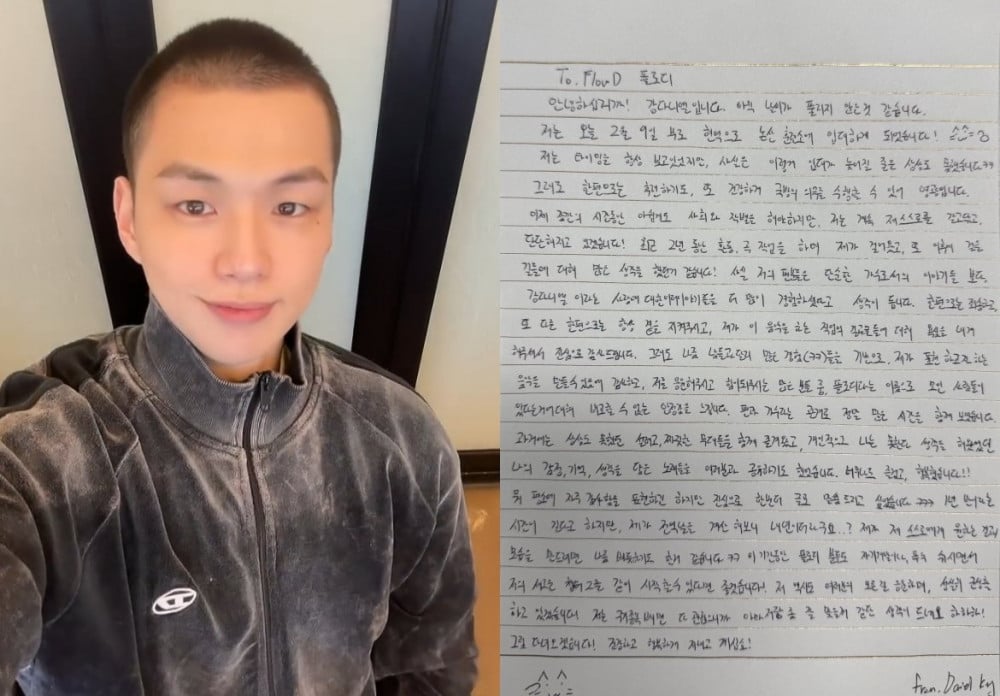 To. FlouD 플로디
안녕하십니까! 강다니엘입니다. 아직 날씨가 풀리지 않은 것 같습니다.
저는 오늘 2월 9일 부로 현역으로 논산 훈련소에 입대하게 되었습니다!
저는 타이밍을 항상 보고있었지만, 사실은 이렇게 입대가 늦어질 줄은 상상도 못했습니다ㅋㅋ
그래도 한편으로는 후련하기도, 또 건강하게 국방의 의무를 수행할 수 있어 영광입니다.
이제 중간의 시간동안 아쉽게도 사회와 작별은 해야하지만, 저는 계속 저 스스로를 갈고닦고,
단단해지고 있겠습니다! 최근 2년 동안 활동, 곡 작업을 하며 제가 걸어왔고, 또 이후의 걸을
길들에 대해 많은 성장을 했던거 같습니다! 사실 저의 팬분들은 단순한 가수로서의 이야기들 보다,
강다니엘 이라는 사람에 대한 이야기들을 더 많이 경험하셨다고 생각이 듭니다. 한편으로는 죄송하고,
또 다른 한편으로는 항상 곁을 지켜주시고, 제가 이 음악을 하는 직업의 결과물들에 대해
해주셔서 진심으로 감사드립니다. 그래도 나름 남들보단 많은 경험(ㅋㅋ)들을 기반으로, 제가 표현 하고자 하는
음악을 만들 수 있음에 감사하고, 저를 응원해주시고 힘이되주시는 많은 분들 중, 플로디라는 이름으로 모인 사람들이
있다는거에 대해 비교할 수 없는 안정감을 느낍니다. 팬과 가수라는 관계로 정말 많은 시간을 함께 보냈습니다.
과거에는 상상도 못했던 설레고, 짜릿한 무대들을 함께 즐겨왔고, 개인적으로 나는 못한다 생각을 해왔었던
나의 감정, 기억, 생각을 담은 노래들을 여러분과 공유하기도 했었습니다. 너무나도 즐겁고, 행복했습니다!!
뭐 평소에 자주 감사함을 표현하곤 하지만 진심으로 한번더 글로 말씀 드리고 싶었습니다 ㅋㅋㅋ 1년 반이라는
시간이 길다고 하지만, 제가 전역날을 계산 해보니 내년이더라구요..? 제가 저 스스로에게 원하는 결과
모습을 만드려면 나름 빠듯하기도 한거 같습니다 ㅋㅋ 이 기간동안 플로디 분들도 자기계발이나, 푹 쉬시면서
저와 서로 챕터 2를 같이 시작할 수 있다면 좋겠습니다! 저 역시도 여러분의 모든걸 응원하며, 성실히 군생활
하고 있겠습니다! 저는
그럼 다녀오겠습니다! 건강하고 행복하게 지내고 계십쇼!
from. Daniel K